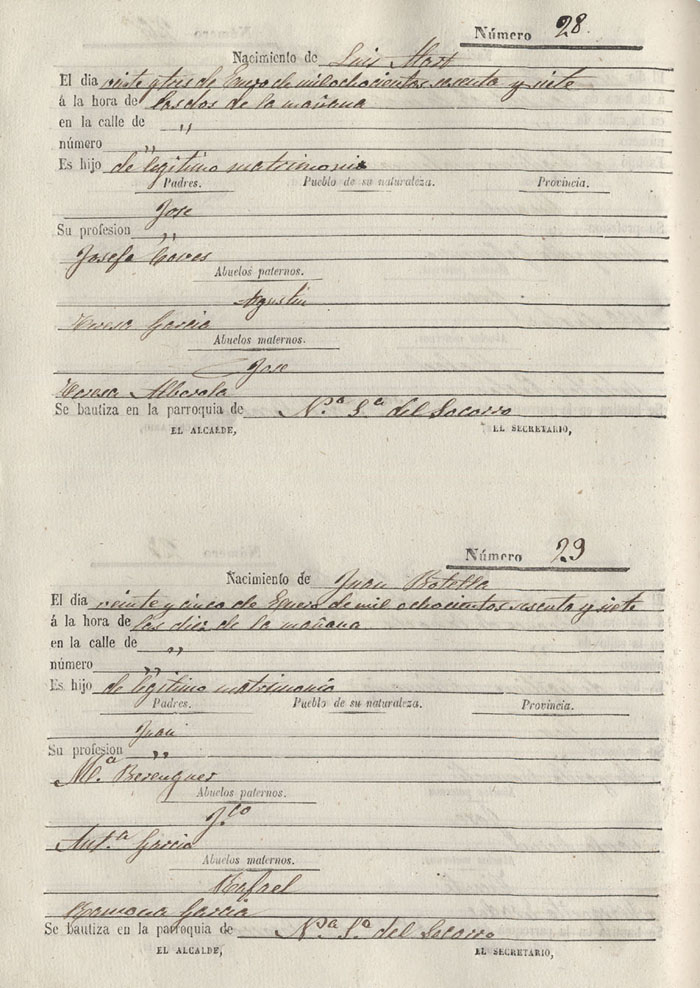 Número 28
Nacimiento de Luis Mas
El dia veinte y tres de Enero de mil ochocientos sesenta y siete
á la hora de las dos de la mañana
en la calle de ,,
número ,,
Es hijo de legítimo matrimonio
Padres. Pueblo de su naturaleza. Provincia.
Jose
Su profesion ,,
Josefa Coves
Abuelos paternos.
Agustin
Teresa Garcia
Abuelos maternos.
Jose
Teresa Alberola
Se bautiza en la parroquia de N.ª S.ª del Socorro
EL ALCALDE, EL SECRETARIO,
Número 29
Nacimiento de Juan Botella
El dia veinte y cinco de Enero de mil ochocientos sesenta y siete
á la hora de las diez de la mañana
en la calle de ,,
número ,,
Es hijo de legítimo matrimonio
Padres. Pueblo de su naturaleza. Provincia.
Juan
Su profesion ,,
M.ª Berenguer
Abuelos paternos.
F.co
Ant.ª Garcia
Abuelos maternos.
Rafael
Ramona Garcia
Se bautiza en la parroquia de N.ª S.ª del Socorro
EL ALCALDE, EL SECRETARIO,